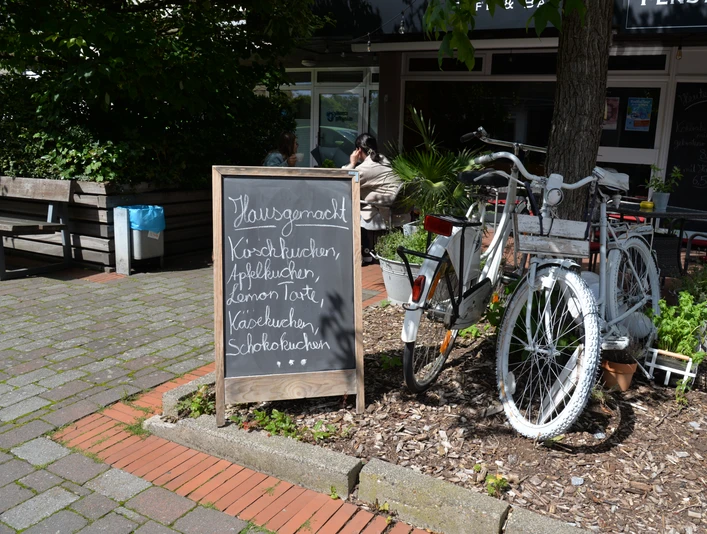 Hausgemacht
Kirschkuchen,
Apfelkuchen,
Lemon Tarte,
Käsekuchen,
Schokokuchen
***